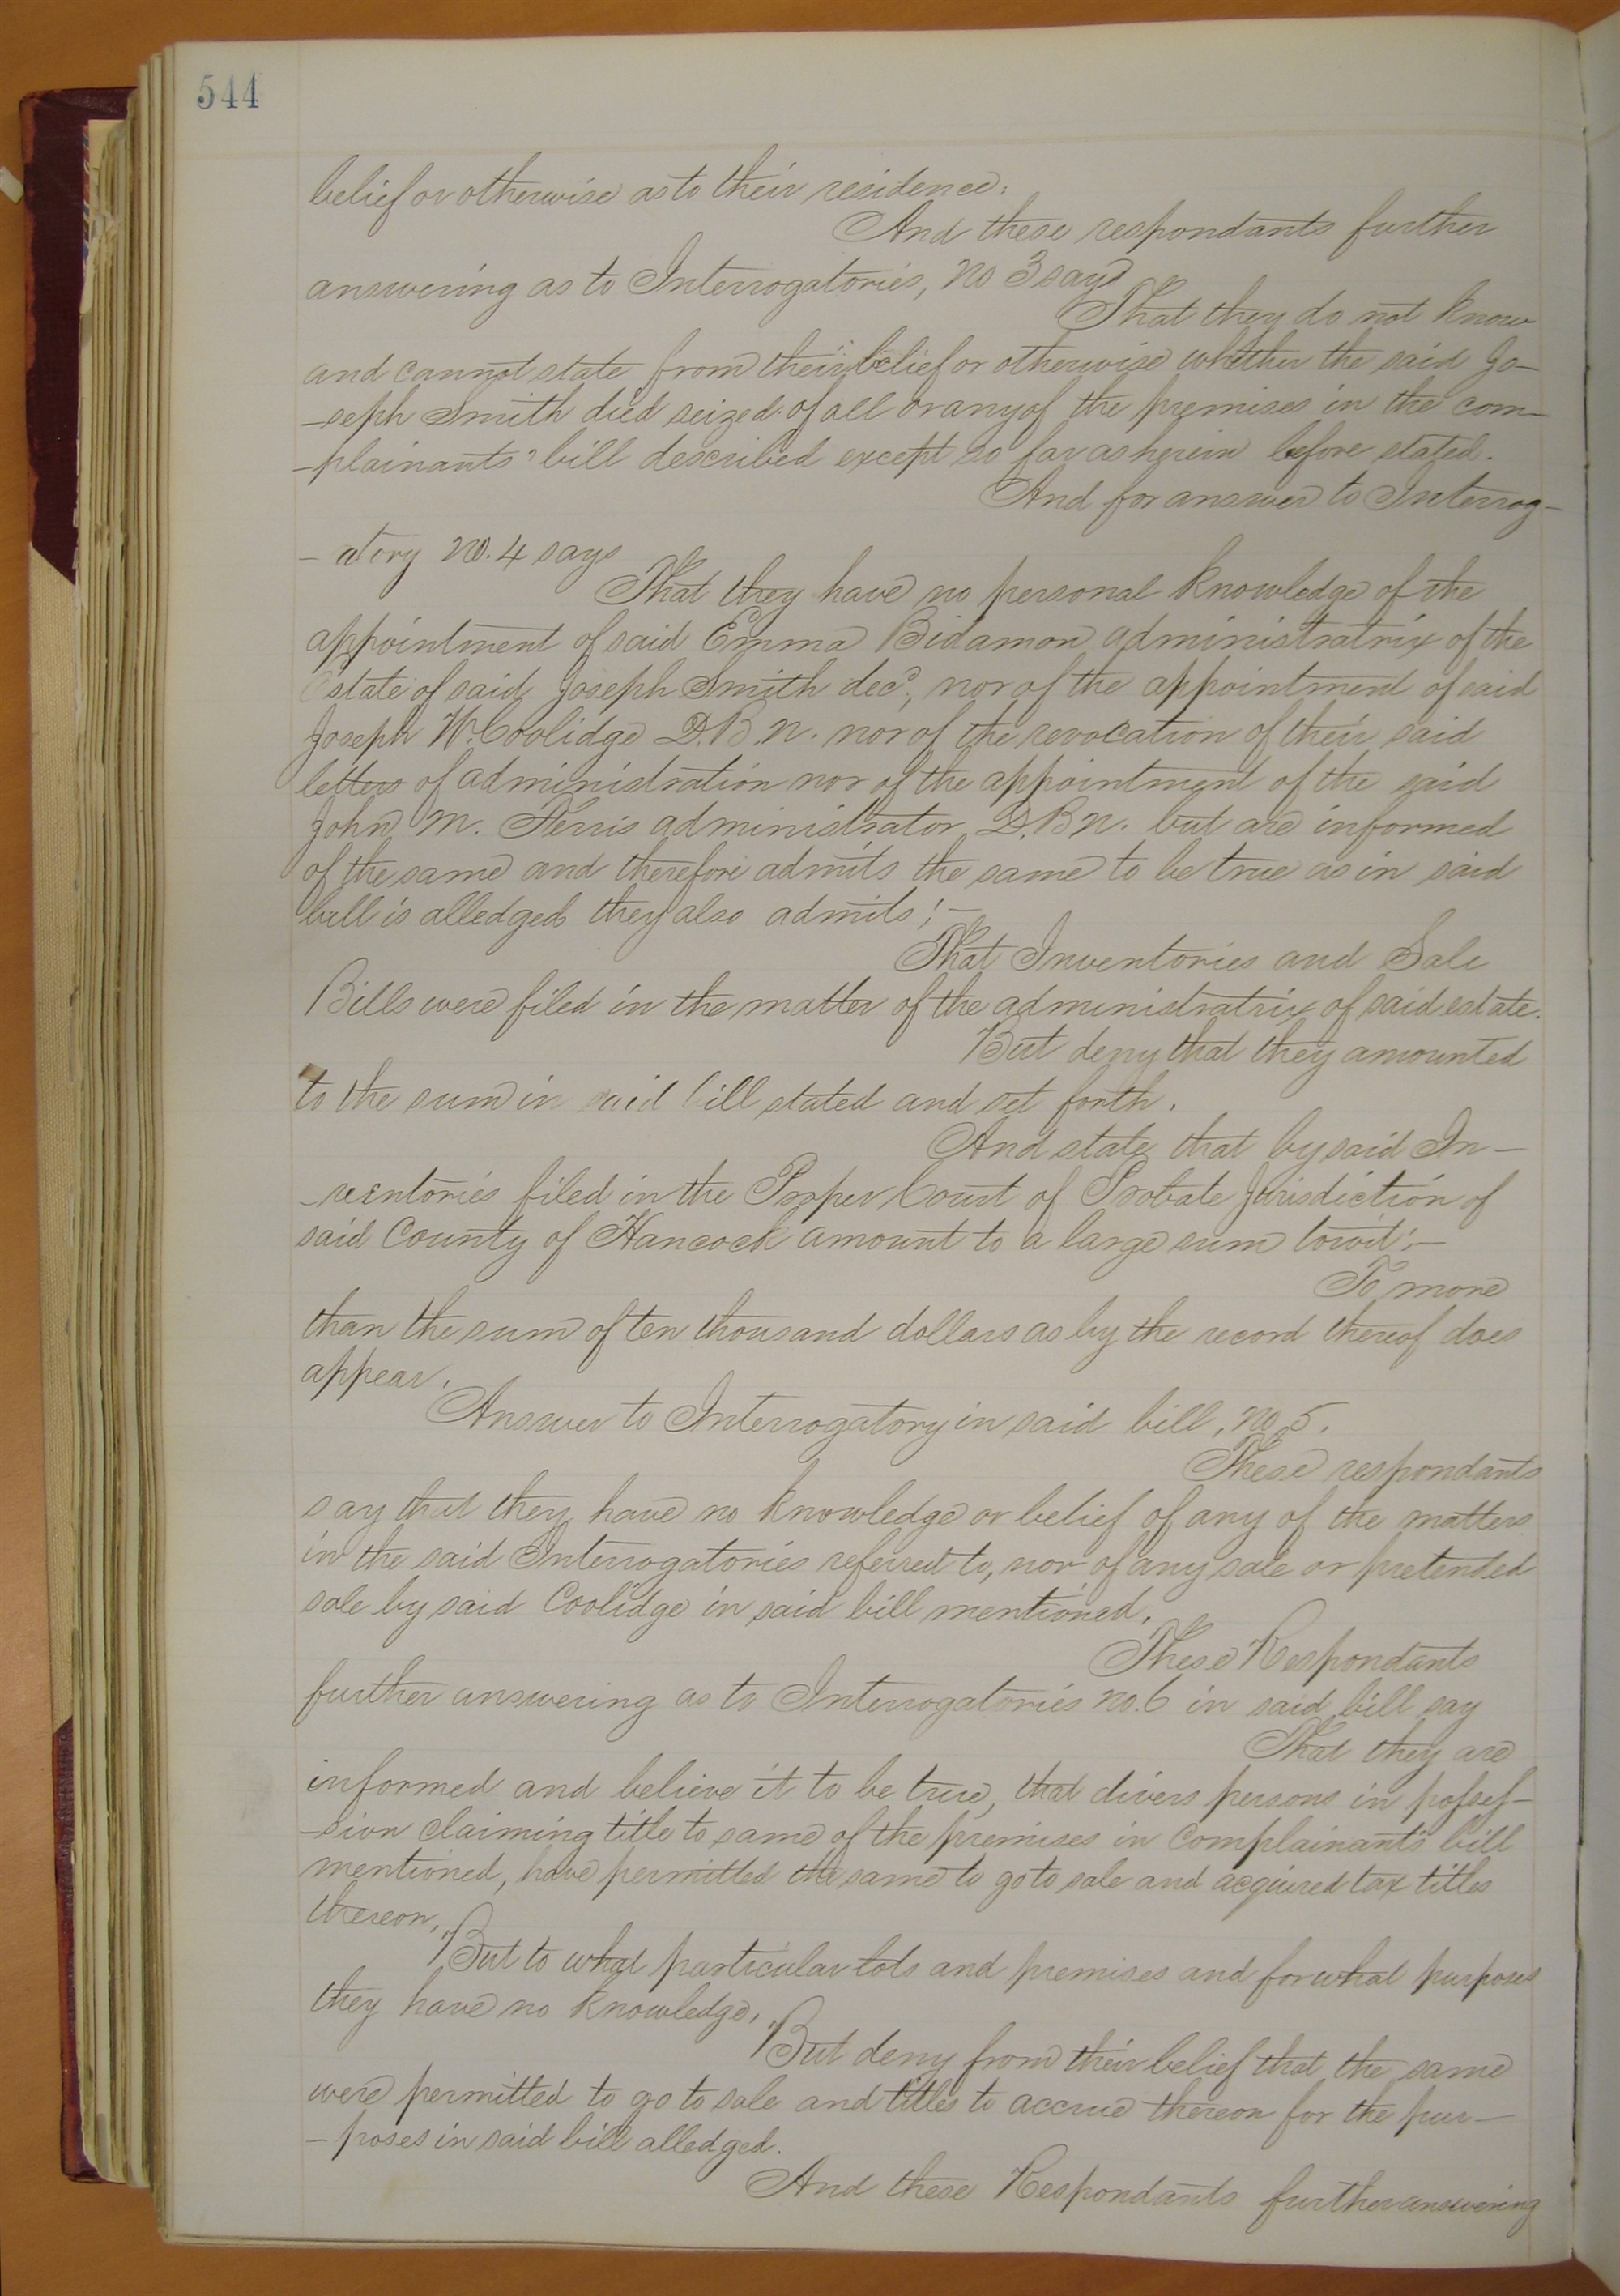 544
belief or otherwise as to their residence.
And these respondants further
answering as to Interrogatories, No 3 says
That they do not know
and cannot state from their belief or otherwise whether the said Jo-
-seph Smith died seized of all or any of the premises in the com-
-plainants' bill described except so far as herein before stated.
And for answer to Interrog-
-atory No. 4 says
That they have no personal knowledge of the
appointment of said Emma Bidamon administratrix of the
Estate of said Joseph Smith decd, nor of the appointment of said
Joseph W. Coolidge D.B.N. nor of the revocation of their said
letters of administration nor of the appointment of the said
John M. Ferris administrator D.B.N. but are informed
of the same and therefore admits the same to be true as in said
bill is alledged they also admits;-
That Inventories and Sale
Bills were filed in the matter of the administratrix of said estate.
But deny that they amounted
to the sum in said bill stated and set forth.
And state that by said In-
-ventories filed in the Proper Court of Probate Jurisdiction of
said County of Hancock amount to a large sum towit:-
To more
than the sum of ten thousand dollars as by the record thereof does
appear.
Answer to Interrogatory in said bill, No 5.
These respondants
say that they have no knowledge or belief of any of the matters
in the said Interrogatories referred to, nor of any sale or pretended
sale by said Coolidge in said bill mentioned.
These Respondants
further answering as to Interrogatories No. 6 in said bill say
That they are
informed and believe it to be true, that divers persons in posses-
-sion claiming title to same of the premises in Complainants bill
mentioned, have permitted the same to go to sale and acquired tax titles
thereon,
But to what particular lots and premises and for what purposes
they have no knowledge,
But deny from their belief that the same
were permitted to go to sale and titles to accrue thereon for the pur-
-poses in said bill alledged.
And these Respondants further answering